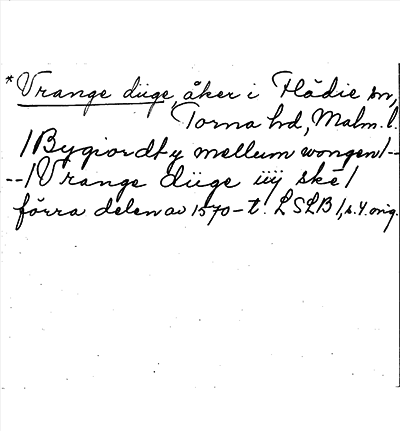 *Vrange diige, åker i Flädie sn,
Torna hd, Malm. l.
/Bygiordt y mellum wongen/--
--/Vrange diige iiij ske/
förra delen av 1570-t. LSLB 1, s. 4. orig.